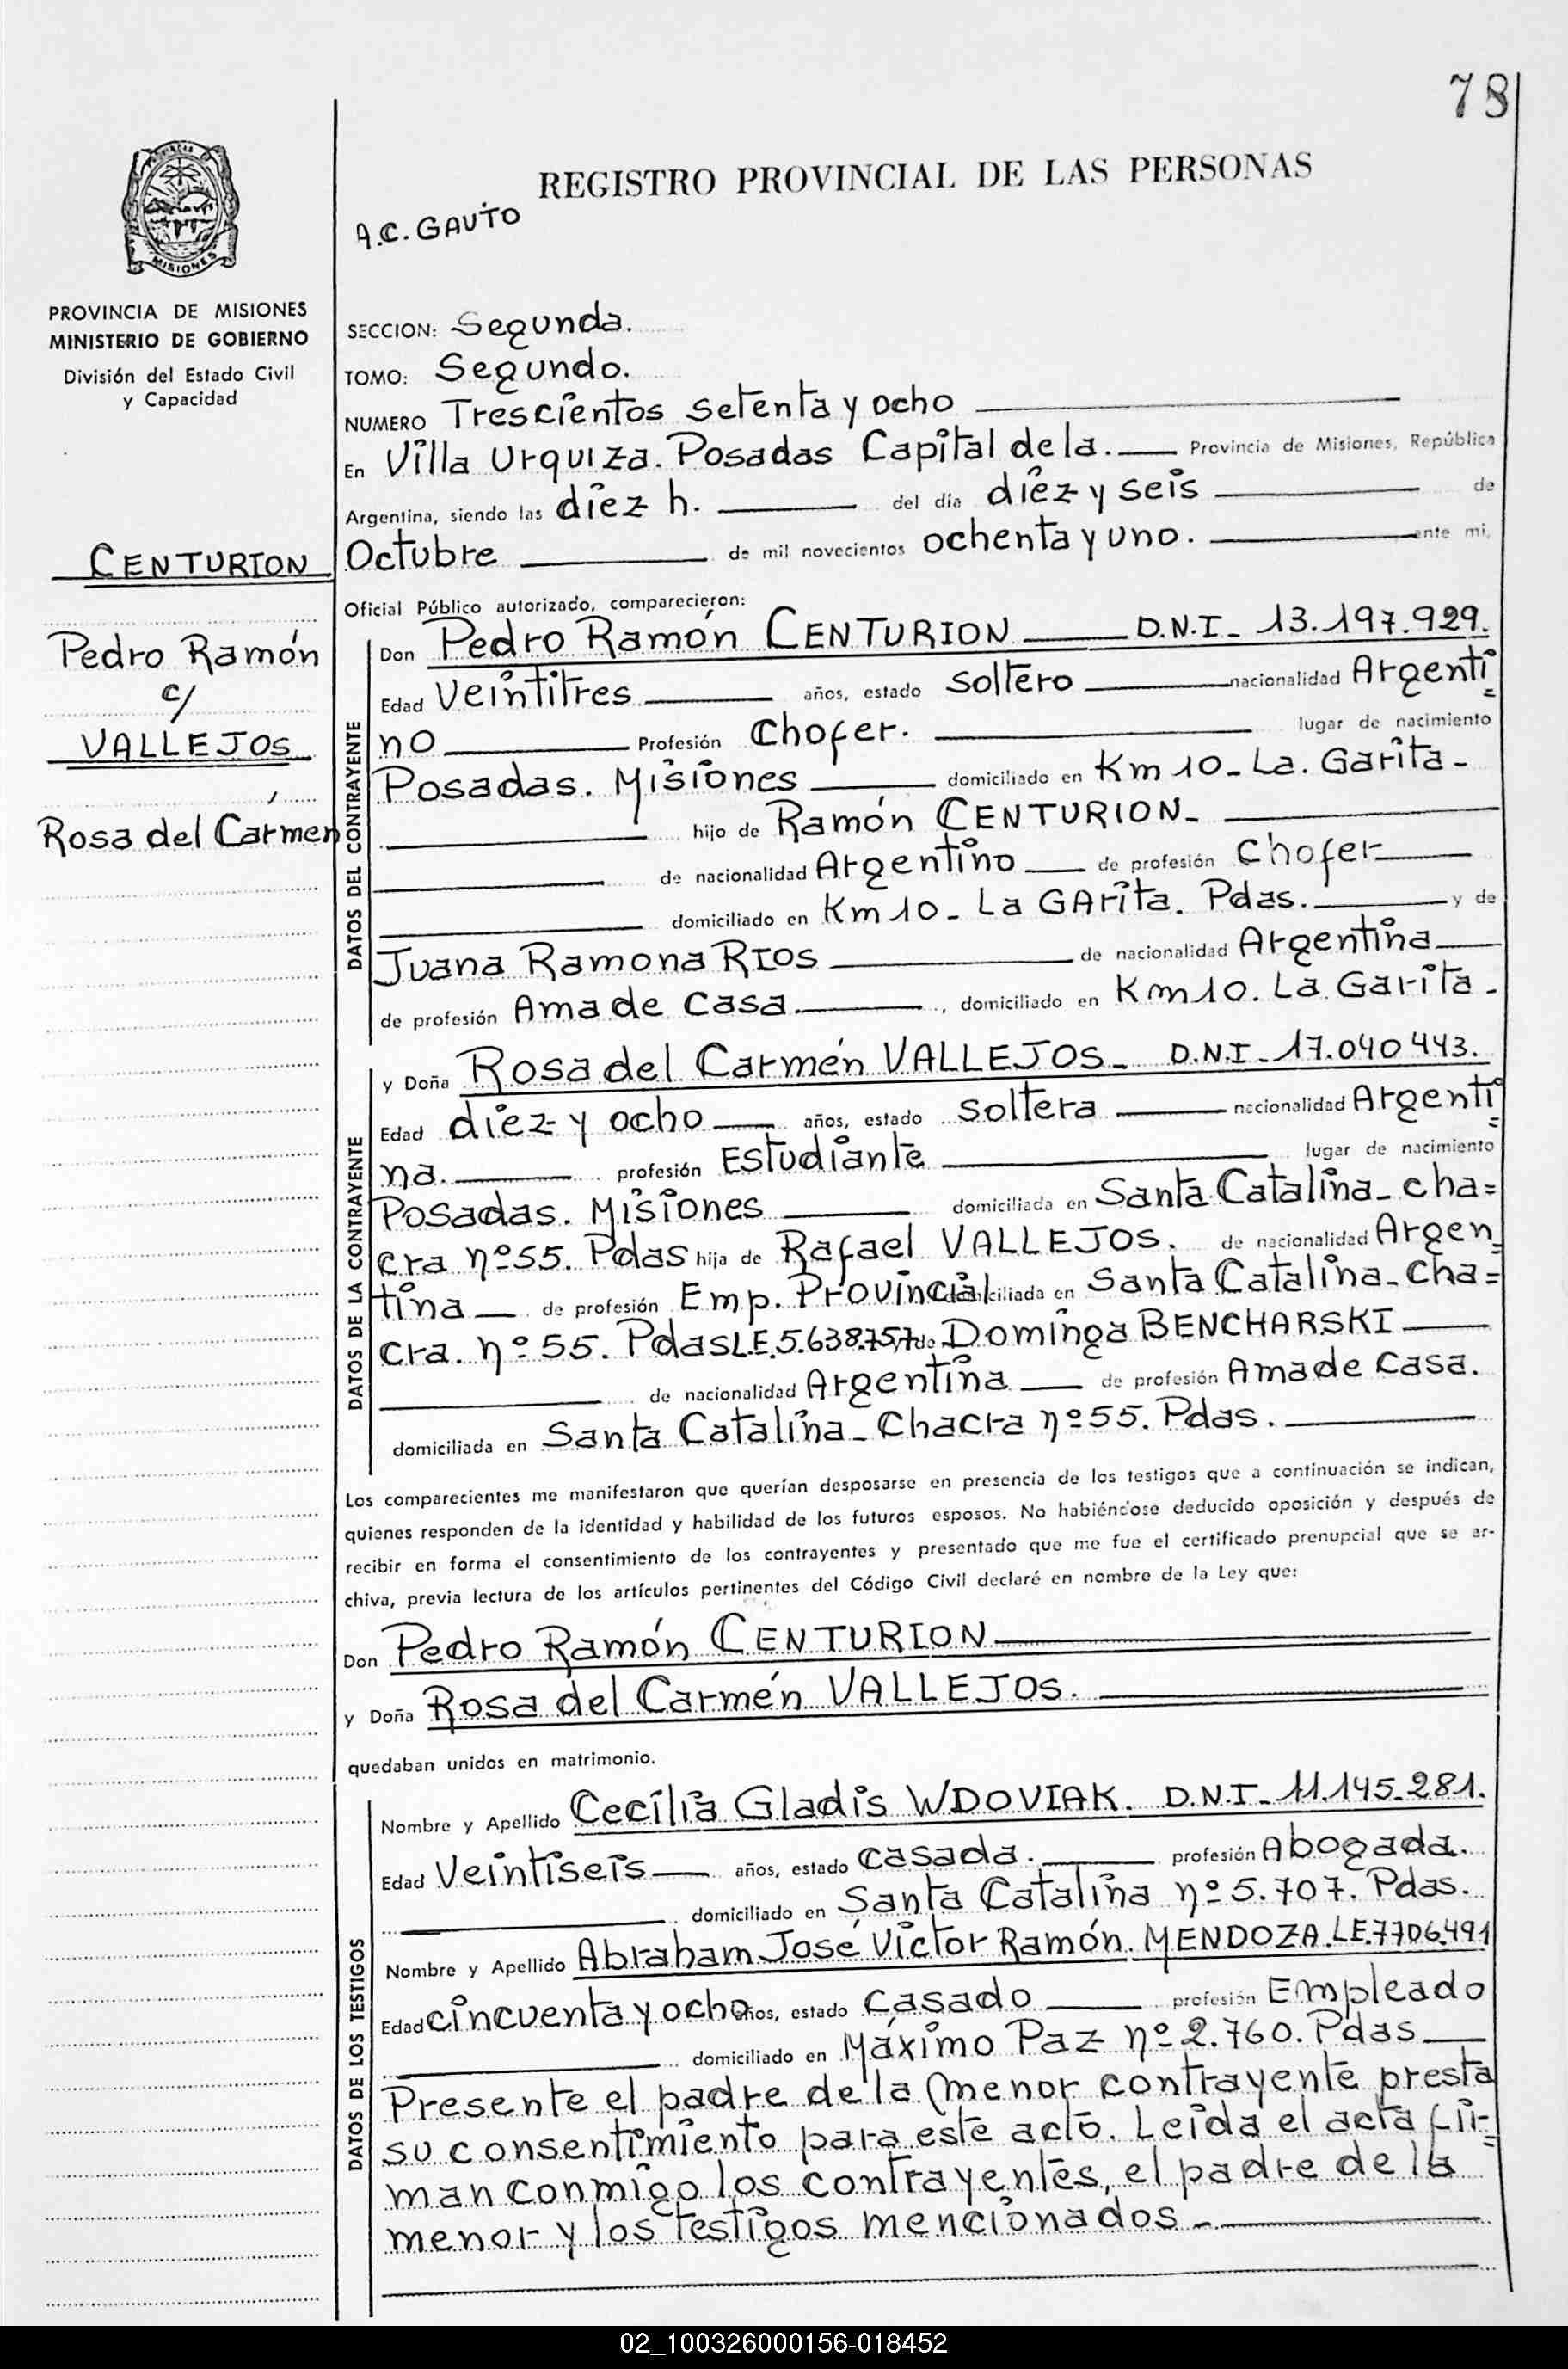 78
REGISTRO PROVINCIAL DE LAS PERSONAS
A.C. GAUTO
MISIONES
PROVINCIA DE MISIONES
MINISTERIO DE GOBIERNO
División del Estado Civil
y Capacidad
CENTURION
Pedro Ramón
c/
VALLEJOS
Rosa del Carmen
SECCION: Segunda.
TOMO: Segundo.
NUMERO Trescientos setenta y ocho
En Villa Urquiza. Posadas Capital de la. Provincia de Misiones, República
Argentina, siendo las diez h. del día diez y seis de
Octubre de mil novecientos ochenta y uno. ante mi,
Oficial Público autorizado, comparecieron:
DATOS DEL CONTRAYENTE
Don Pedro Ramón CENTURION D.N.I. 13.197.929.
Edad Veintitres años, estado soltero nacionalidad Argenti=
no Profesión Chofer. lugar de nacimiento
Posadas. Misiones domiciliado en Km 10 - La. Garita -
hijo de Ramón CENTURION -
de nacionalidad Argentino de profesión Chofer
domiciliado en Km 10 - La GArita. Pdas. y de
Juana Ramona RIOS de nacionalidad Argentina
de profesión Ama de casa. , domiciliado en Km 10. La. Garita -
DATOS DE LA CONTRAYENTE
y Doña Rosa del Carmen VALLEJOS - D.N.I - 17.040443.
Edad diez y ocho años, estado soltera nacionalidad Argenti=
na. profesión Estudiante lugar de nacimiento
Posadas. Misiones domiciliada en Santa Catalina - cha=
cra nº 55. Pdas hija de Rafael VALLEJOS. de nacionalidad Argen=
tina de profesión Emp. Provincial domiciliada en Santa Catalina - Cha=
cra. nº 55. Pdas L.E. 5.638.757 y de Dominga BENCHARSKI
de nacionalidad Argentina de profesión Ama de casa.
domiciliada en Santa Catalina - Chacra nº 55. Pdas.
Los comparecientes me manifestaron que querían desposarse en presencia de los testigos que a continuación se indican,
quienes responden de la identidad y habilidad de los futuros esposos. No habiéndose deducido oposición y después de
recibir en forma el consentimiento de los contrayentes y presentado que me fue el certificado prenupcial que se ar-
chiva, previa lectura de los artículos pertinentes del Código Civil declaré en nombre de la Ley que:
Don Pedro Ramón CENTURION
y Doña Rosa del Carmen VALLEJOS.
quedaban unidos en matrimonio.
DATOS DE LOS TESTIGOS
Nombre y Apellido Cecilia Gladis WDOVIAK. D.N.I - 11.145.281.
Edad Veintiseis años, estado casada. profesión Abogada.
domiciliado en Santa Catalina nº 5.707. Pdas.
Nombre y Apellido Abraham José Victor Ramón. MENDOZA. L.E. 7706.491
Edad cincuenta y ocho años, estado casado profesión Empleado
domiciliado en Máximo Paz nº 2.760. Pdas
Presente el padre de la menor contrayente presta
su consentimiento para este acto. Leida el acta fir=
man conmigo los contrayentes, el padre de la
menor y los testigos mencionados -
02_100326000156-018452